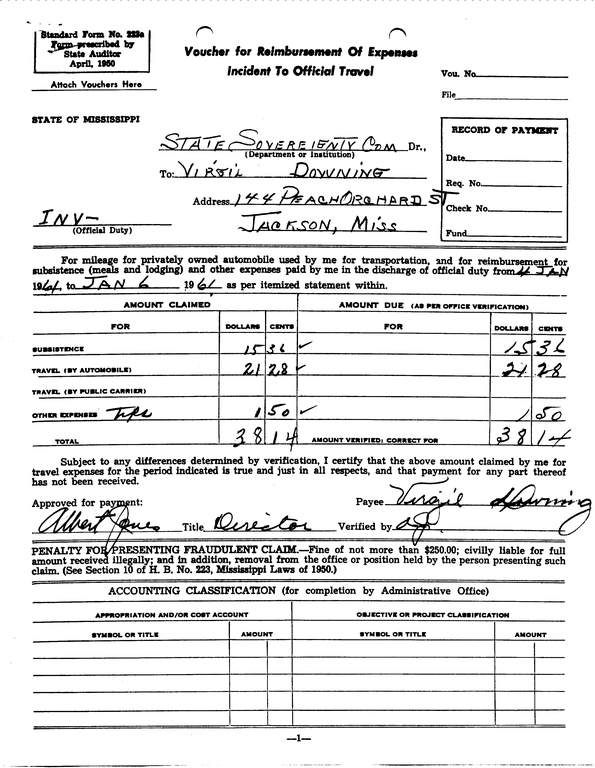 Standard Form No. 223a
Form prescribed by
State Auditor
April, 1950
Attach Vouchers Here
Voucher for Reimbursement Of Expenses
Incident To Official Travel
Vou. No.
File
STATE OF MISSISSIPPI
RECORD OF PAYMENT
Date
Req. No.
Check No.
Fund
STATE SOVEREIENTY COM Dr.,
(Department or Institution)
To: VIRGIL DOWNING
Address 144 PEACH ORCHARD ST
INV- JACKSON, MISS
(Official Duty)
For mileage for privately owned automobile used by me for transportation, and for reimbursement for
subsistence (meals and lodging) and other expenses paid by me in the discharge of official duty from 4 JAN
1961, to JAN 6 1961 as per itemized statement within.
AMOUNT CLAIMED AMOUNT DUE (AS PER OFFICE VERIFICATION)
FOR DOLLARS CENTS FOR DOLLARS CENTS
SUBSISTENCE 15 36 ✓ 15 36
TRAVEL (BY AUTOMOBILE) 21 28 ✓ 21 28
TRAVEL (BY PUBLIC CARRIER)
OTHER EXPENSES Tips 1 50 ✓ 1 50
TOTAL 38 14 AMOUNT VERIFIED: CORRECT FOR 38 14
Subject to any differences determined by verification, I certify that the above amount claimed by me for
travel expenses for the period indicated is true and just in all respects, and that payment for any part thereof
has not been received.
Approved for payment: Payee Virgil Downing
Albert Jones Title Director Verified by
PENALTY FOR PRESENTING FRAUDULENT CLAIM.—Fine of not more than $250.00; civilly liable for full
amount received illegally; and in addition, removal from the office or position held by the person presenting such
claim. (See Section 10 of H. B. No. 223, Mississippi Laws of 1950.)
ACCOUNTING CLASSIFICATION (for completion by Administrative Office)
APPROPRIATION AND/OR COST ACCOUNT OBJECTIVE OR PROJECT CLASSIFICATION
SYMBOL OR TITLE AMOUNT SYMBOL OR TITLE AMOUNT
—1—